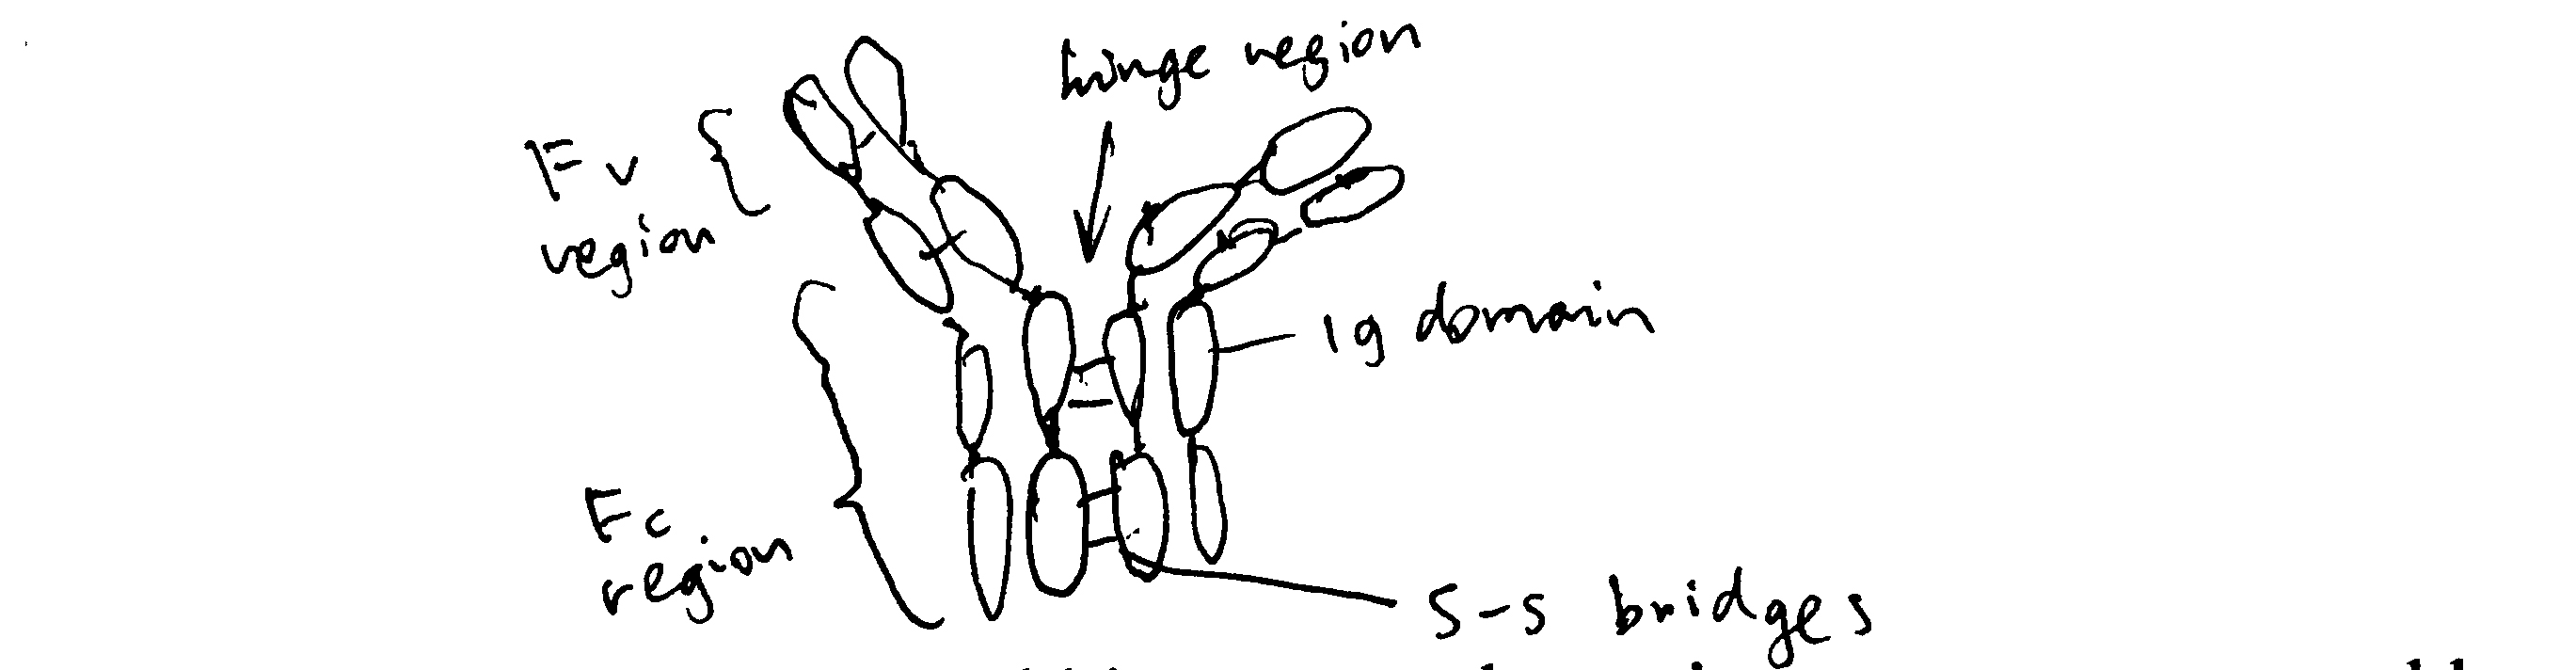 hinge region
Fv
region
Ig domain
Fc
region
S-S bridges